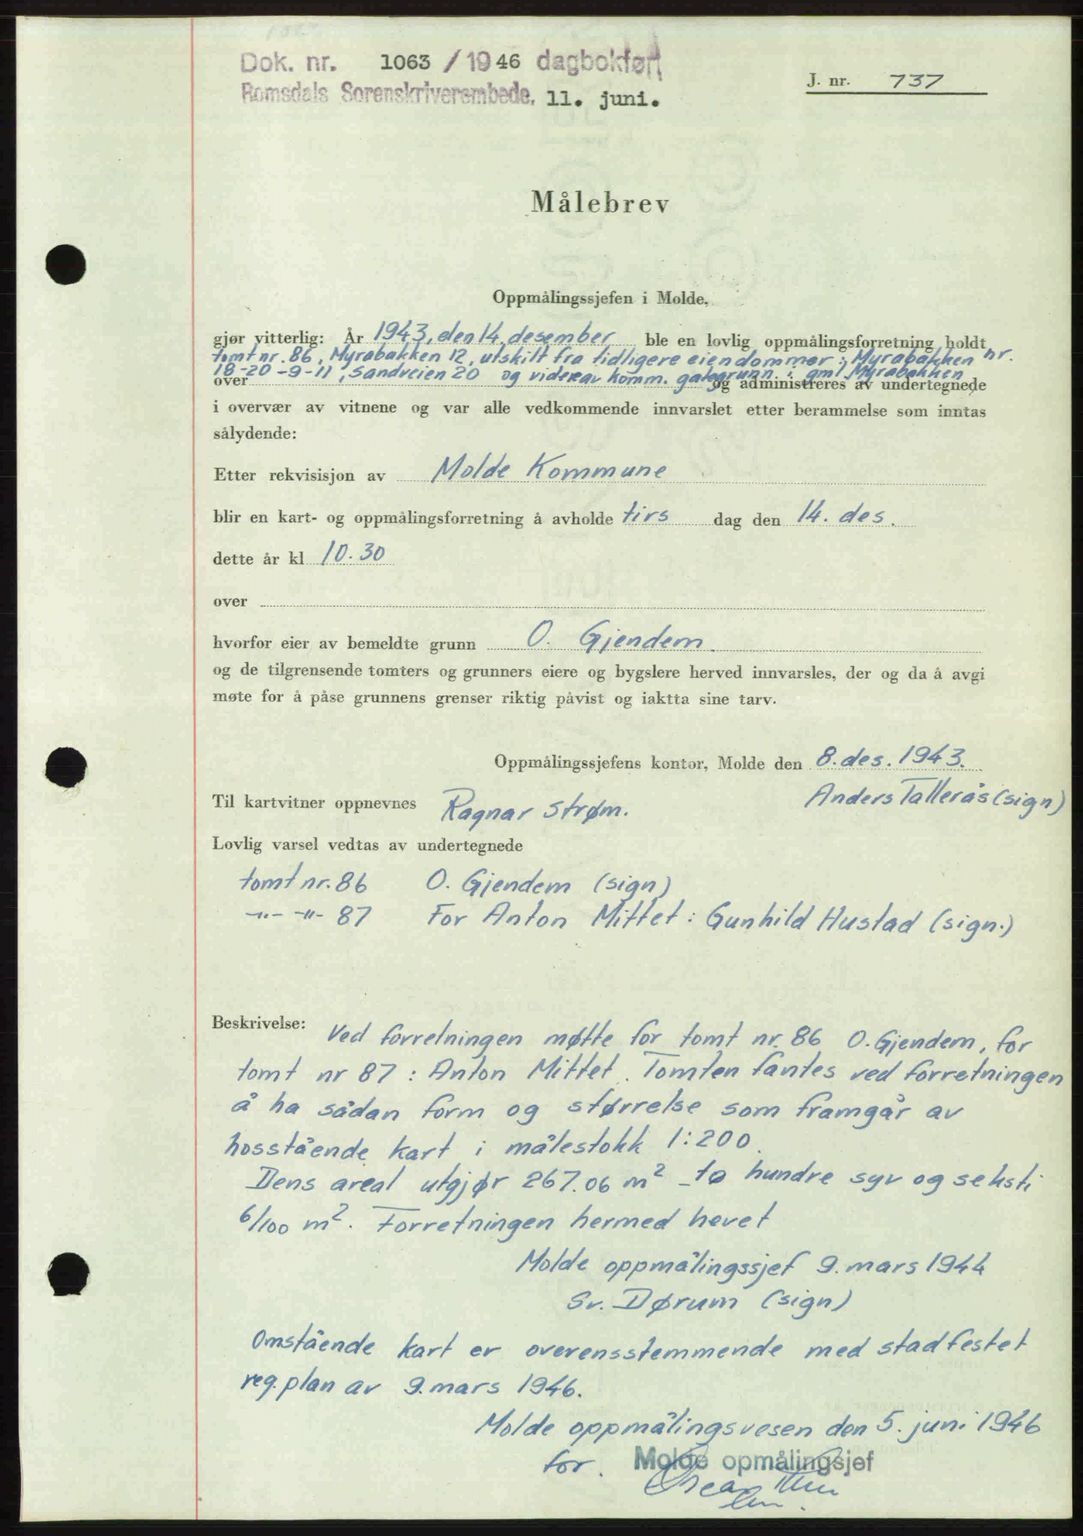 Dok. nr. 1063 / 1946 dagbokført
Romsdals Sorenskriverembede, 11. juni.
J. nr. 737
Målebrev
Oppmålingssjefen i Molde,
gjør vitterlig: År 1943, den 14. desember ble en lovlig oppmålingsforretning holdt
tomt nr. 86, Myrabakken 12, utskilt fra tidligere eiendommer: Myrabakken nr.
18-20-9-11, Sandveien 20 og videre av komm. gategrunn i gml. Myrabakken
over og administreres av undertegnede
i overvær av vitnene og var alle vedkommende innvarslet etter berammelse som inntas
sålydende:
Etter rekvisisjon av Molde Kommune
blir en kart- og oppmålingsforretning å avholde tirs dag den 14. des.
dette år kl 10.30
over
hvorfor eier av bemeldte grunn O. Gjendem.
og de tilgrensende tomters og grunners eiere og bygslere herved innvarsles, der og da å avgi
møte for å påse grunnens grenser riktig påvist og iaktta sine tarv.
Oppmålingssjefens kontor, Molde den 8. des. 1943.
Anders Tallerås (sign)
Til kartvitner oppnevnes Ragnar Strøm.
Lovlig varsel vedtas av undertegnede
tomt nr. 86 O. Gjendem (sign)
-"- -"- 87 For Anton Mittet: Gunhild Hustad (sign.)
Beskrivelse: Ved forretningen møtte for tomt nr. 86 O. Gjendem, for
tomt nr 87: Anton Mittet. Tomten fantes ved forretningen
å ha sådan form og størrelse som framgår av
hosstående kart i målestokk 1:200.
Dens areal utgjør 267.06 m² - to hundre syv og seksti
6/100 m². Forretningen hermed hevet
Molde oppmålingssjef 9. mars 1944
Sv. Dørum (sign)
Omstående kart er overensstemmende med stadfestet
reg.plan av 9. mars 1946.
Molde oppmålingsvesen den 5. juni 1946
for. Molde opmålingsjef